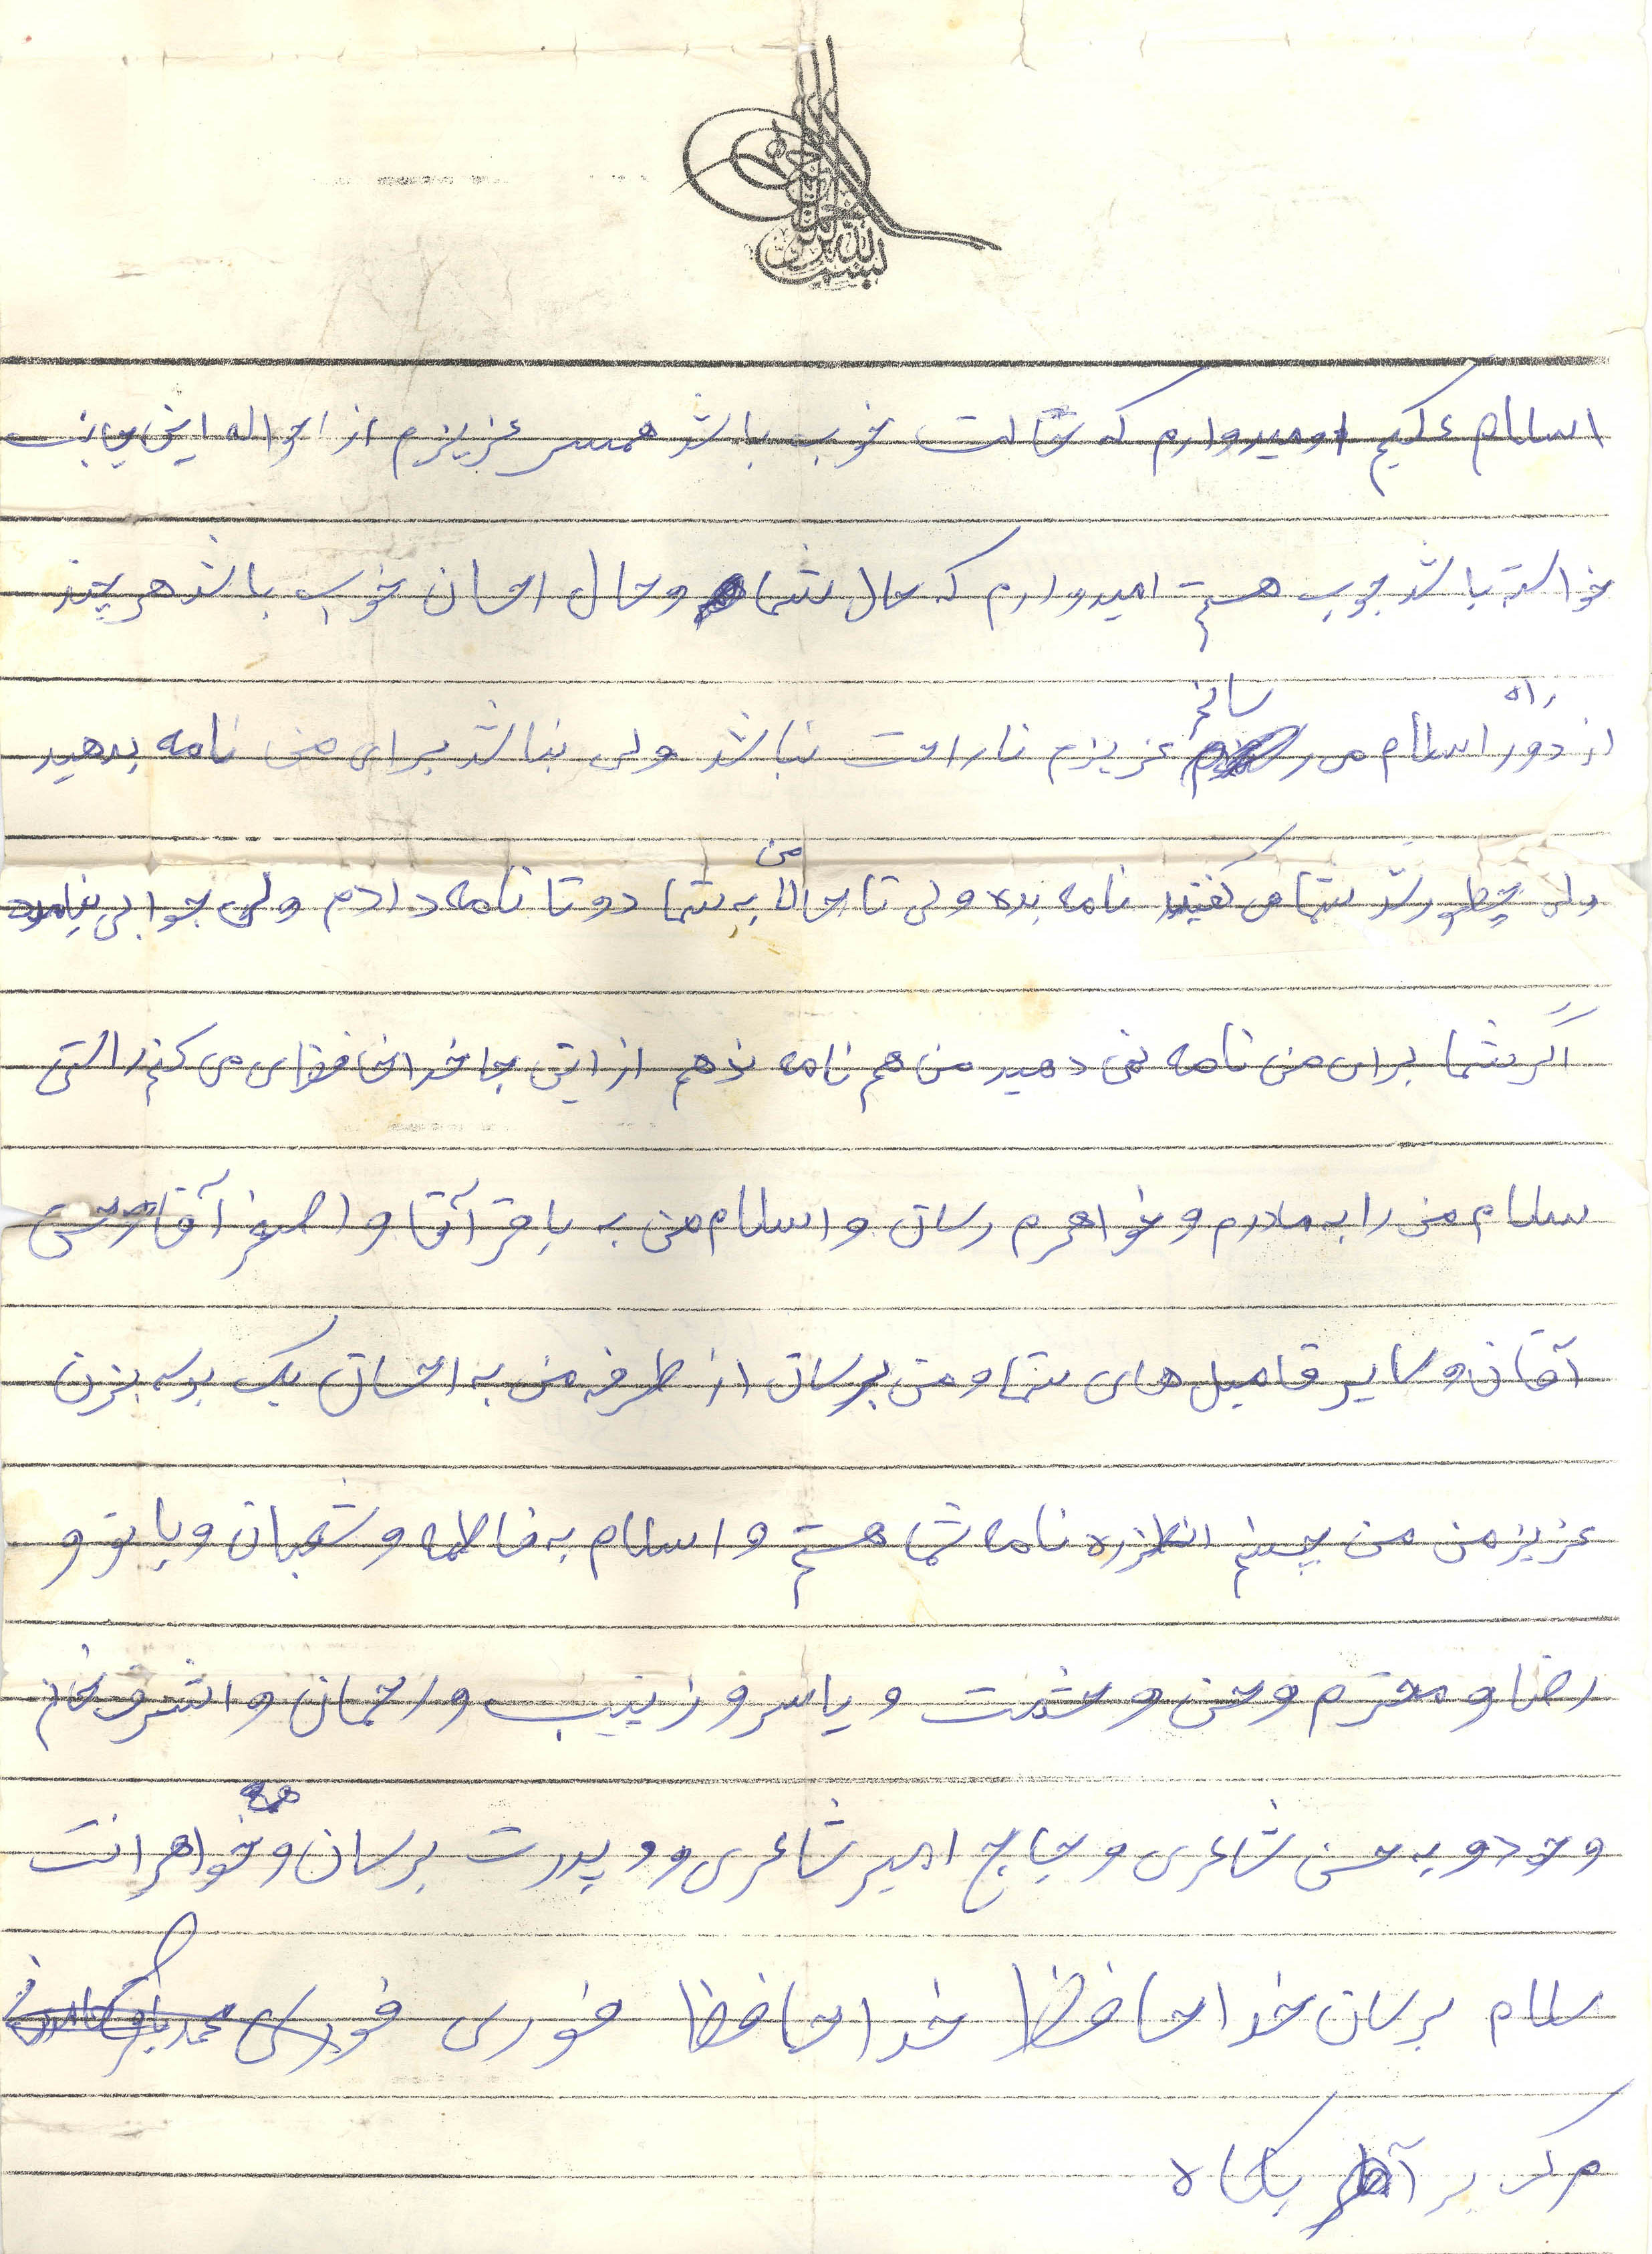 بسم الله الرحمن الرحیم
اسلام علکیم اومیدوارم که حالت خوب باشد همسر عزیزم از احواله این جانب
خواسته باشد خوب هستم امیدوارم که حال شما و حال احسان خوب باشد هر چند
از راه دور اسلام می رسانم عزیزم ناراحت نباشد ولی نباشد برای من نامه بدهید
ولی چطور شد شما می گفتید نامه بده ولی تا حالا من به شما دو تا نامه دادم ولی جوابی نیامد
اگر شما برای من نامه نمی دهید من هم نامه ندهم از این جا خداحافظی می کنم راستی
سلام من را به مادرم و خواهرم رسان و اسلام من به باقر آقا و اصغر آقا
آقا و سایر فامیل های شما و من برسان از طرفه من به احسان یک بوسه بزن
عزیز من من چشم انظره نامه شما هستم و اسلام به فاطمه و شعبان و یاقر و
رضا و محترم و حسن و حشمت و یاسر و زینب و رحمان و اشرف خانم
و خود و به حسن شاعری و حاج امیر شاعری و و پدرت برسان و همه خواهرانت
سلام برسان خدا حافظ خدا حافظ فوری فوری
مرگ بر آمریکا